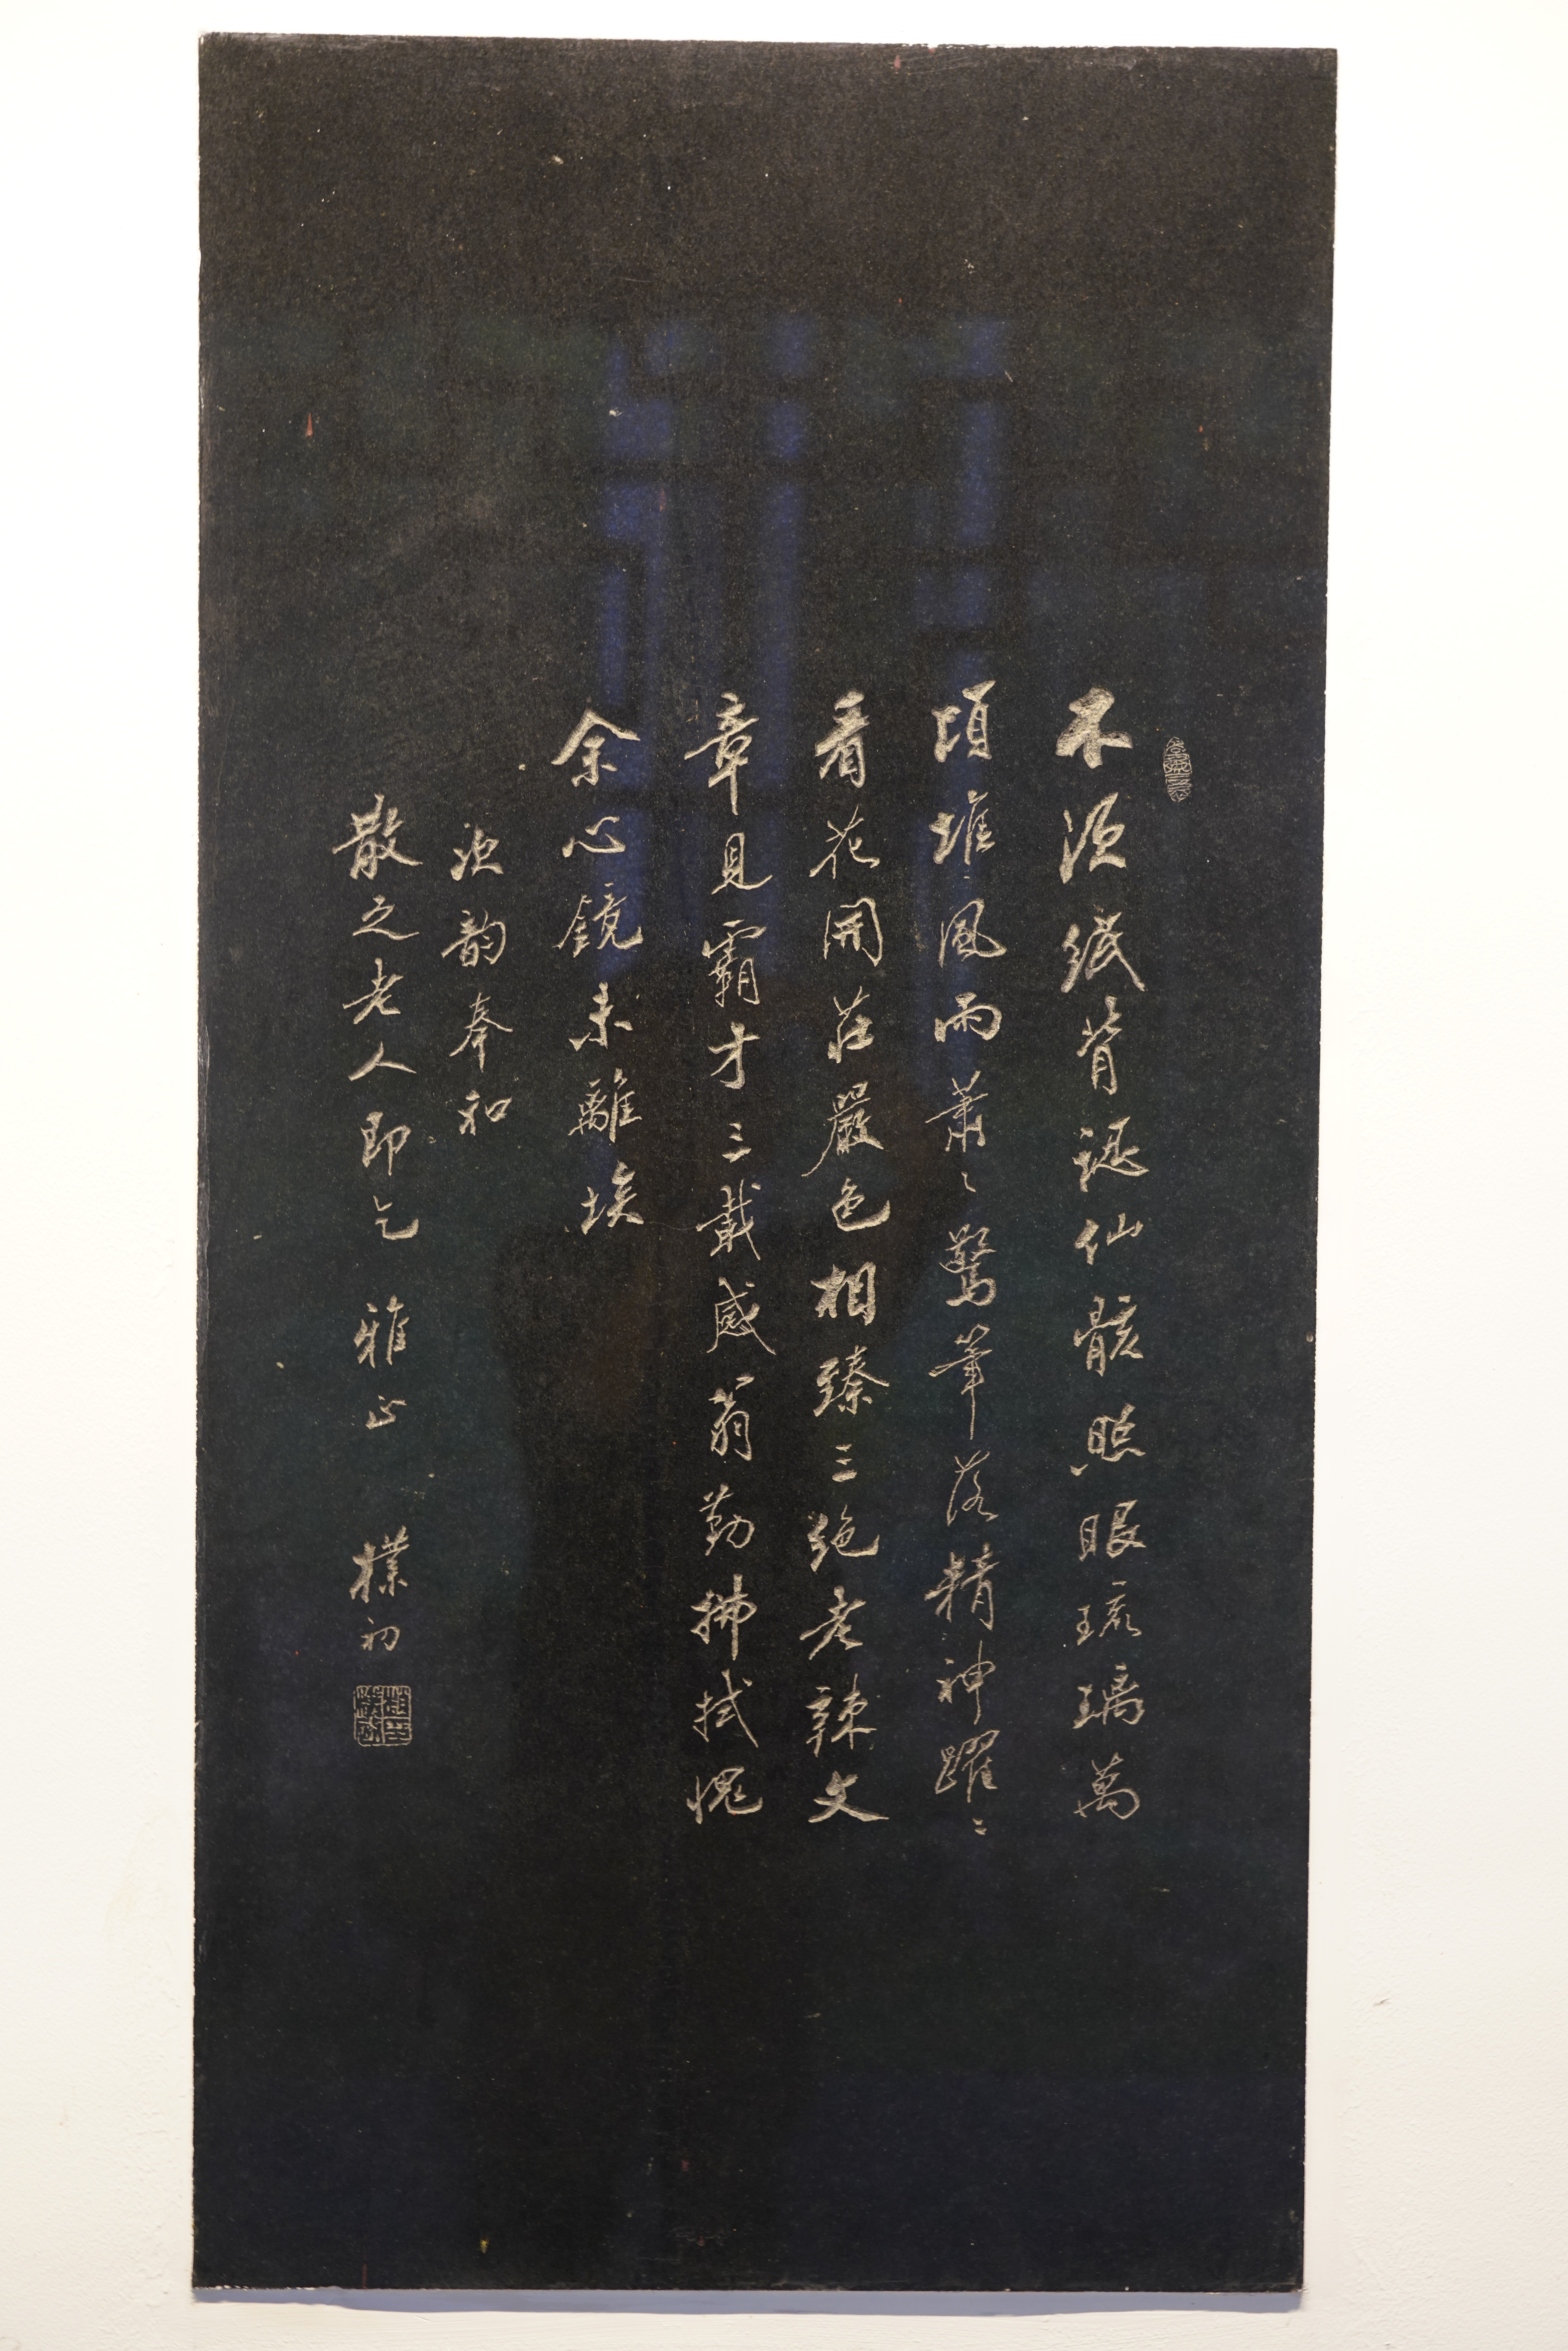 不须纸背认仙骸照眼琉璃萬
頃堆風雨蕭々驚筆落精神躍々
看花開莊嚴色相臻三绝老辣文
章見霸才三載感翁勤拂拭愧
余心鏡未離埃
次韵奉和
散之老人即乞 雅正 樸初
趙樸初